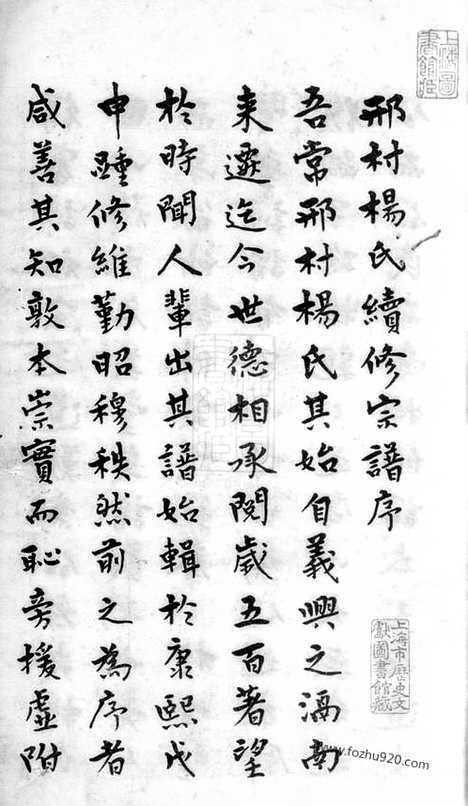 邢村楊氏續修宗譜序
吾常邢村楊氏其始自義興之滆南
来遷迄今世德相承閱歲五百著望
於時聞人輩出其譜始輯於康熙戊
申踵修維勤昭穆秩然前之為序者
咸善其知敦本崇實而恥旁援虛附
上海圖書館藏
上海市歷史文獻圖書館藏
www.fozhu920.com